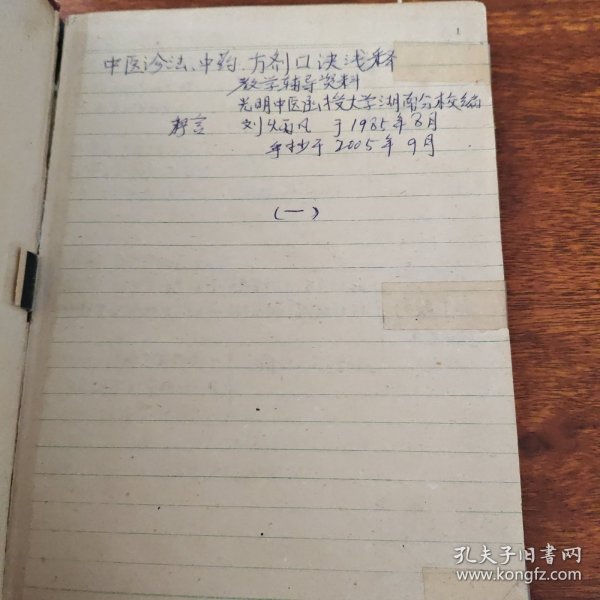 1
中医诊法、中药、方剂口诀浅释
教学辅导资料
光明中医函授大学湖南分校编
序言 刘炳凡 于1985年8月
手抄于2005年9月
(一)
孔夫子旧书网
www.kongfz.com